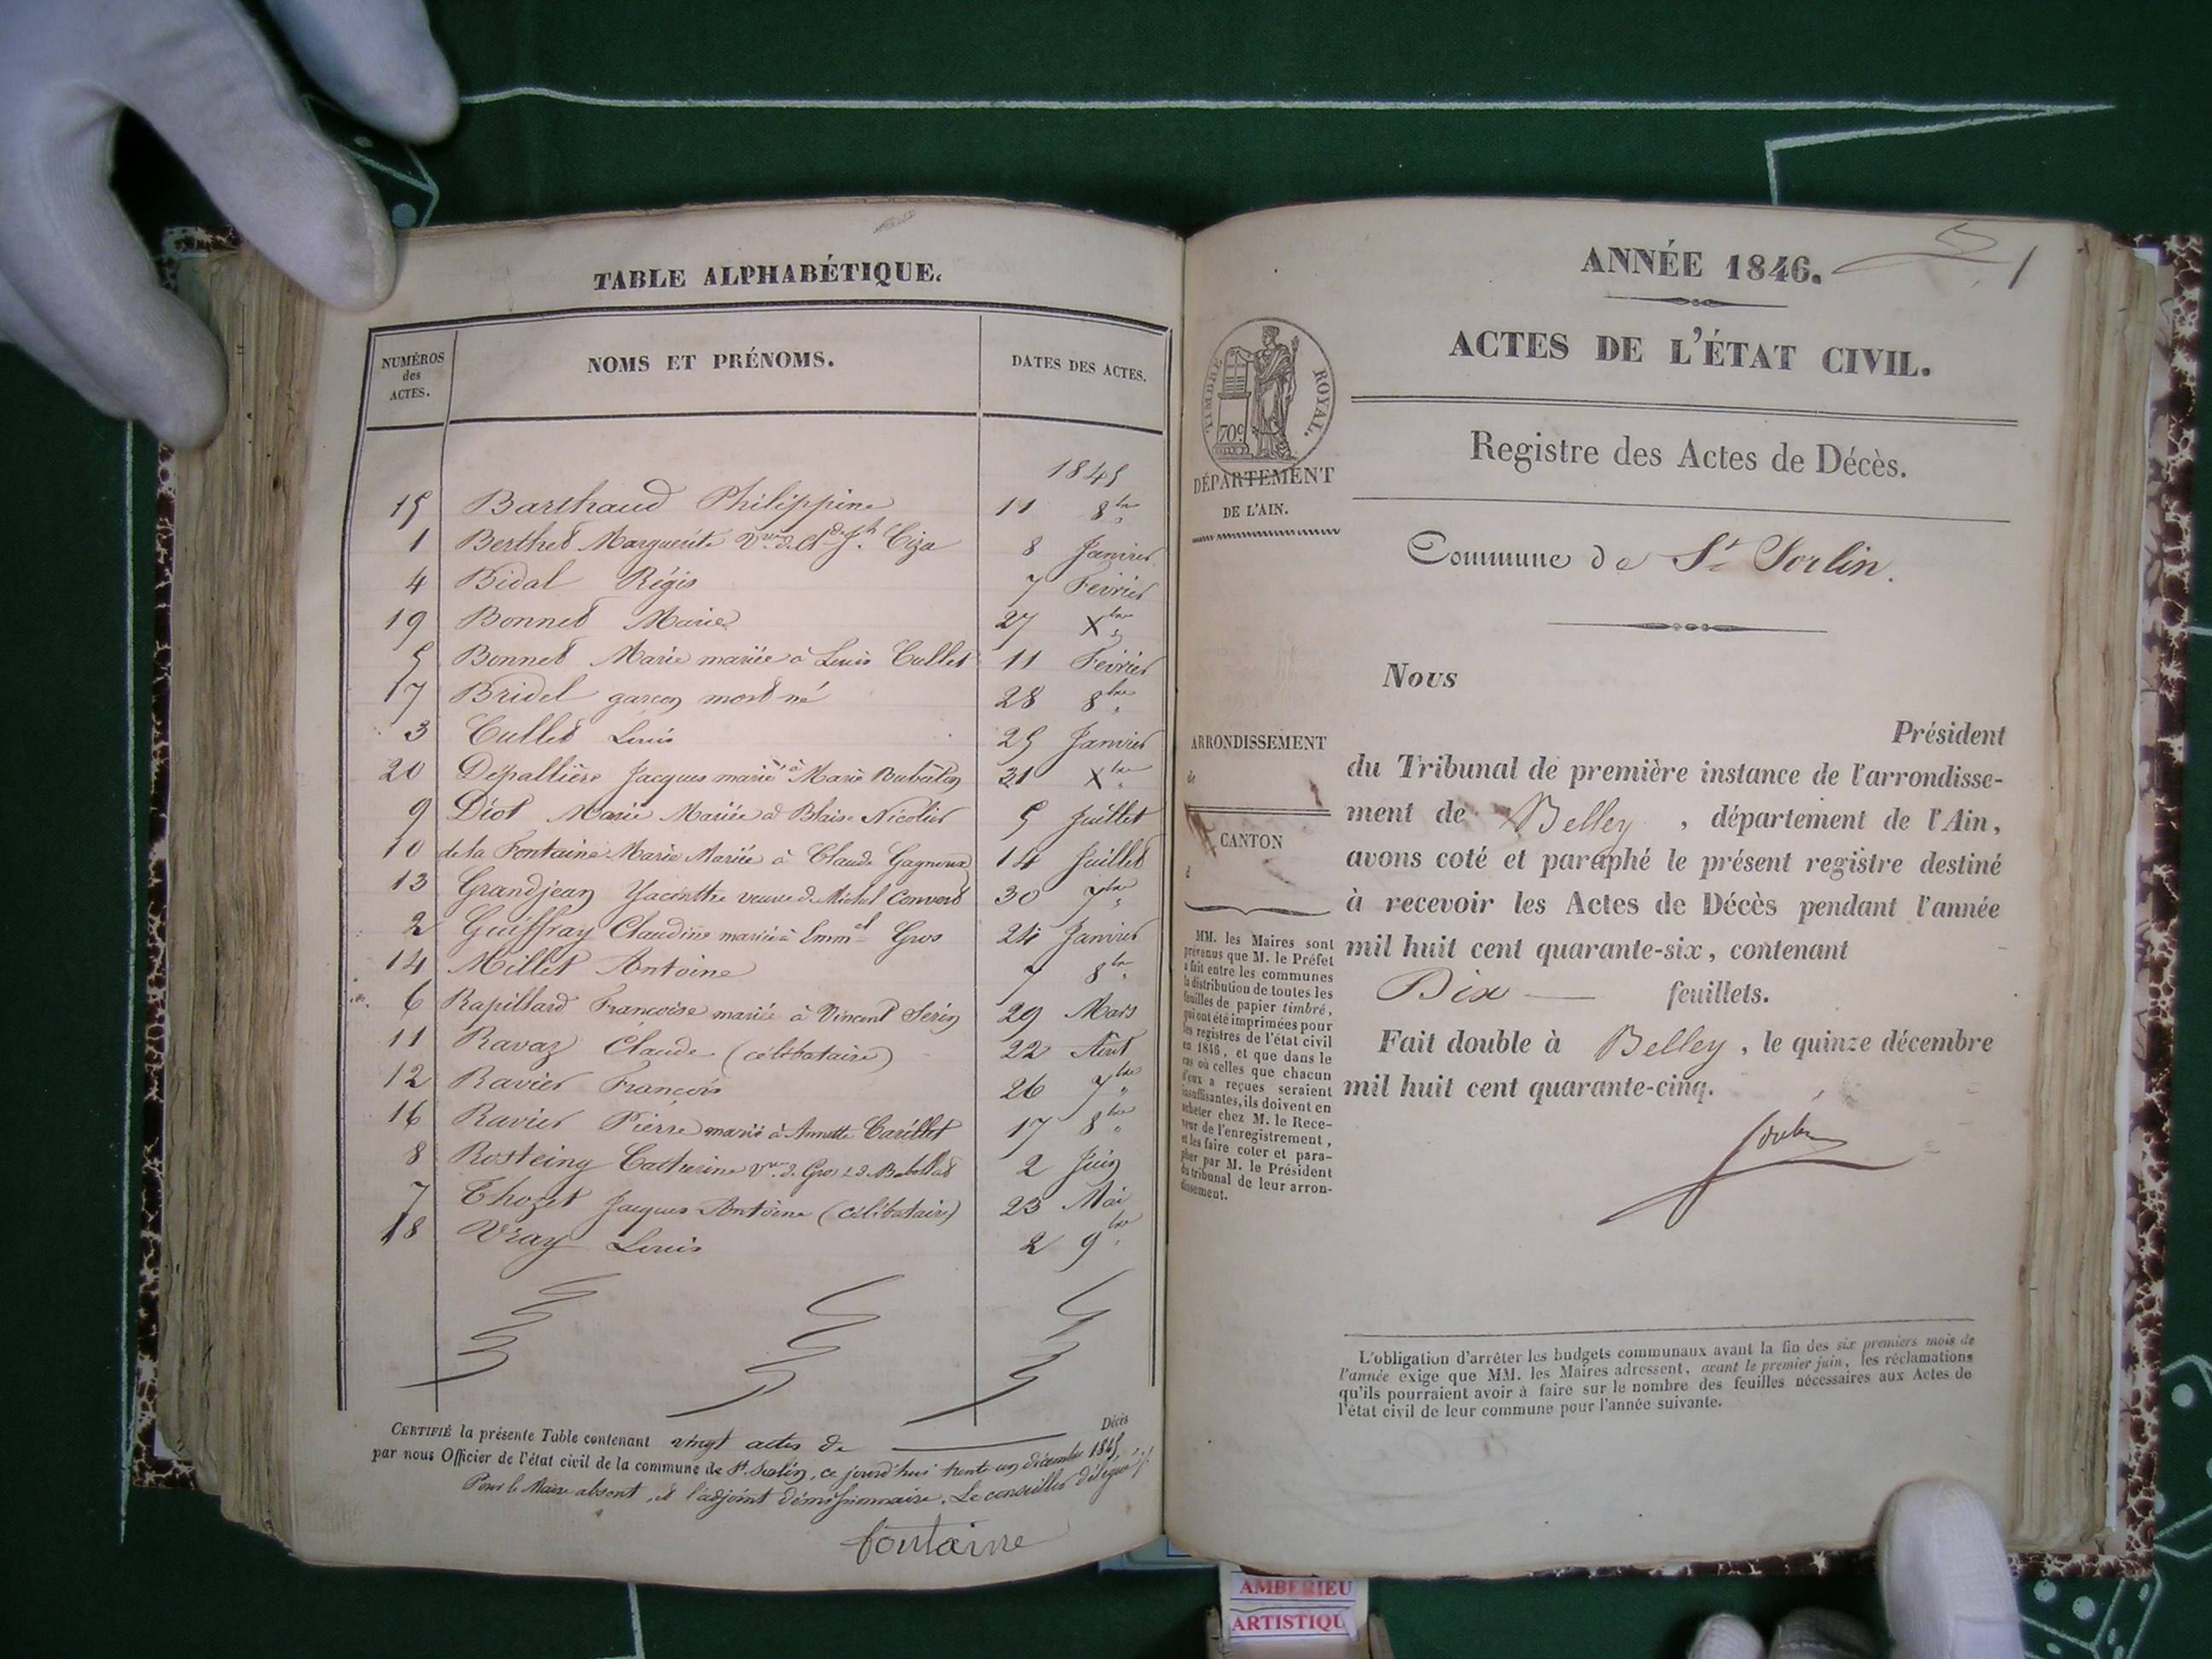 TABLE ALPHABÉTIQUE.
NUMÉROS des ACTES.
NOMS ET PRÉNOMS.
DATES DES ACTES.
1845
15 Barthaud Philippine 11 8bre
1 Berthet Marguerite Vve de Cl de Jh Ciza 8 Janvier
4 Bidal Régis 7 Fevrier
19 Bonnet Marie 27 Xbre
5 Bonnet Marie mariée à Louis Cullet 11 Fevrier
17 Bridel garçon mort né 28 8bre
3 Cullet Louis 25 Janvier
20 Dépallière Jacques marié à Marie Rubaton 31 Xbre
9 Diot Marie Mariée à Blaise Nicolier 5 Juillet
10 de la Fontaine Marie Mariée à Claude Gagneux 14 Juillet
13 Grandjean Yacinthe veuve de Michel Convert 30 7bre
2 Guiffray Claudine mariée à Emmel Gros 24 Janvier
14 Millet Antoine 7 8bre
6 Rapillard Francoise mariée à Vincent Serin 29 Mars
11 Ravaz Claude (célibataire) 22 Aout
12 Ravier François 26 7bre
16 Ravier Pierre marié à Annette Carillet 17 8bre
8 Rosteing Catherine Vve de Gros 2 Juin
7 Thozet Jacques Antoine (célibataire) 23 Mai
18 Vray Louis 2 9bre
CERTIFIÉ la présente Table contenant vingt actes de Décès
par nous Officier de l'état civil de la commune de St. Sorlin, ce jourd'hui trente un décembre 1845,
Pour le Maire absent, et l'adjoint démissionnaire. Le conseiller délégué
fontaine
ANNÉE 1846.
1
ACTES DE L'ÉTAT CIVIL.
TIMBRE ROYAL.
70c
DÉPARTEMENT
DE L'AIN.
Registre des Actes de Décès.
Commune de St Sorlin.
Nous
Président
du Tribunal de première instance de l'arrondisse-
ment de Belley, département de l'Ain,
avons coté et paraphé le présent registre destiné
à recevoir les Actes de Décès pendant l'année
mil huit cent quarante-six, contenant
Dix feuillets.
Fait double à Belley, le quinze décembre
mil huit cent quarante-cinq.
ARRONDISSEMENT
de
CANTON
d
MM. les Maires sont
prévenus que M. le Préfet
a fait entre les communes
la distribution de toutes les
feuilles de papier timbré,
qui ont été imprimées pour
les registres de l'état civil
en 1846, et que dans le
cas où celles que chacun
d'eux a reçues seraient
insuffisantes, ils doivent en
acheter chez M. le Rece-
veur de l'enregistrement,
et les faire coter et para-
pher par M. le Président
du tribunal de leur arron-
dissement.
L'obligation d'arrêter les budgets communaux avant la fin des six premiers mois de
l'année exige que MM. les Maires adressent, avant le premier juin, les réclamations
qu'ils pourraient avoir à faire sur le nombre des feuilles nécessaires aux Actes de
l'état civil de leur commune pour l'année suivante.
AMBERIEU
ARTISTIQU